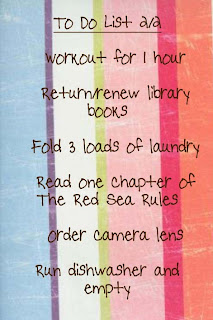 To Do List 2/2
workout for 1 hour
Return/renew library
books
Fold 3 loads of laundry
Read one chapter of
The Red Sea Rules
Order camera lens
Run dishwasher and
empty